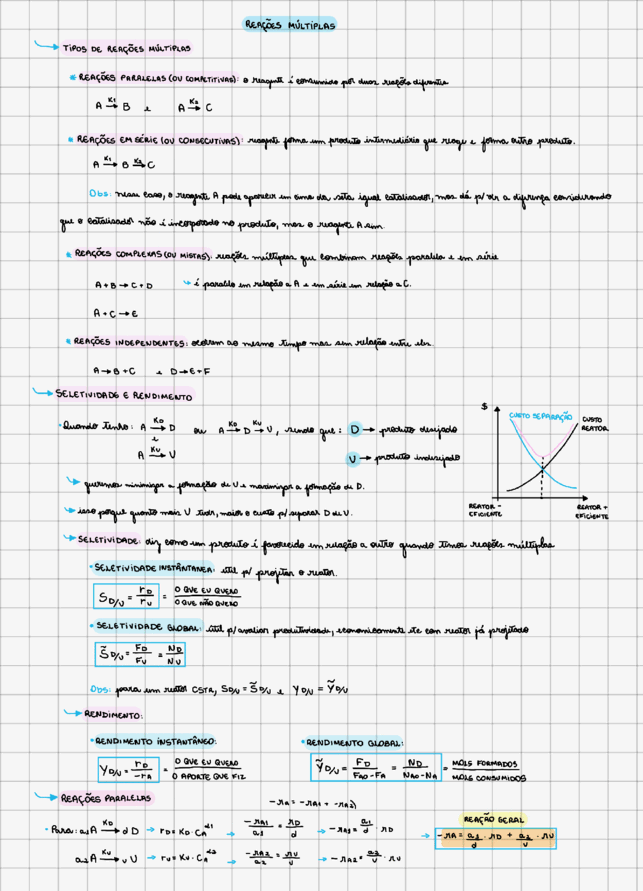 REAÇÕES MÚLTIPLAS
TIPOS DE REAÇÕES MÚLTIPLAS
* REAÇÕES PARALELAS (OU COMPETITIVAS): o reagente é consumido por duas reações diferentes
A —K1→ B e A —K2→ C
* REAÇÕES EM SÉRIE (OU CONSECUTIVAS): reagente forma um produto intermediário que reage e forma outro produto.
A —K1→ B —K2→ C
Obs: nesse caso, o reagente A pode aparecer em cima da seta igual catalisador, mas dá p/ ver a diferença considerando
que o catalisador não é incorporado no produto, mas o reagente A sim.
* REAÇÕES COMPLEXAS (OU MISTAS): reações múltiplas que combinam reações paralela e em série
A + B → C + D ↳ é paralela em relação a A e em série em relação a C.
A + C → E
* REAÇÕES INDEPENDENTES: ocorrem ao mesmo tempo mas sem relação entre elas.
A → B + C e D → E + F
SELETIVIDADE E RENDIMENTO
• Quando tenho: A —KD→ D ou A —KD→ D —KU→ U, sendo que: D → produto desejado
e
A —KU→ U
U → produto indesejado
$
CUSTO SEPARAÇÃO
CUSTO REATOR
REATOR - EFICIENTE
REATOR + EFICIENTE
queremos minimizar a formação de U e maximizar a formação de D.
isso porque quanto mais U tiver, maior o custo p/ separar D de U.
SELETIVIDADE: diz como um produto é favorecido em relação a outro quando temos reações múltiplas
• SELETIVIDADE INSTANTÂNEA: útil p/ projetar o reator.
S_D/U = r_D / r_U = O QUE EU QUERO / O QUE NÃO QUERO
• SELETIVIDADE GLOBAL: útil p/ avaliar produtividade, economicamente etc com reator já projetado
S̃_D/U = F_D / F_U = N_D / N_U
Obs: para um reator CSTR, S_D/U = S̃_D/U e Y_D/U = Ỹ_D/U
RENDIMENTO:
• RENDIMENTO INSTANTÂNEO:
Y_D/U = r_D / -r_A = O QUE EU QUERO / O APORTE QUE FIZ
• RENDIMENTO GLOBAL:
Ỹ_D/U = F_D / (F_A0 - F_A) = N_D / (N_A0 - N_A) = MOLS FORMADOS / MOLS CONSUMIDOS
REAÇÕES PARALELAS
-r_A = -r_A1 + -r_A2
REAÇÃO GERAL
• Para: a1A —KD→ d D → r_D = K_D · C_A^α1 → -r_A1 / a1 = r_D / d → -r_A1 = a1/d · r_D → -r_A = a1/d · r_D + a2/u · r_U
a2A —KU→ u U → r_U = K_U · C_A^α2 → -r_A2 / a2 = r_U / u → -r_A2 = a2/u · r_U